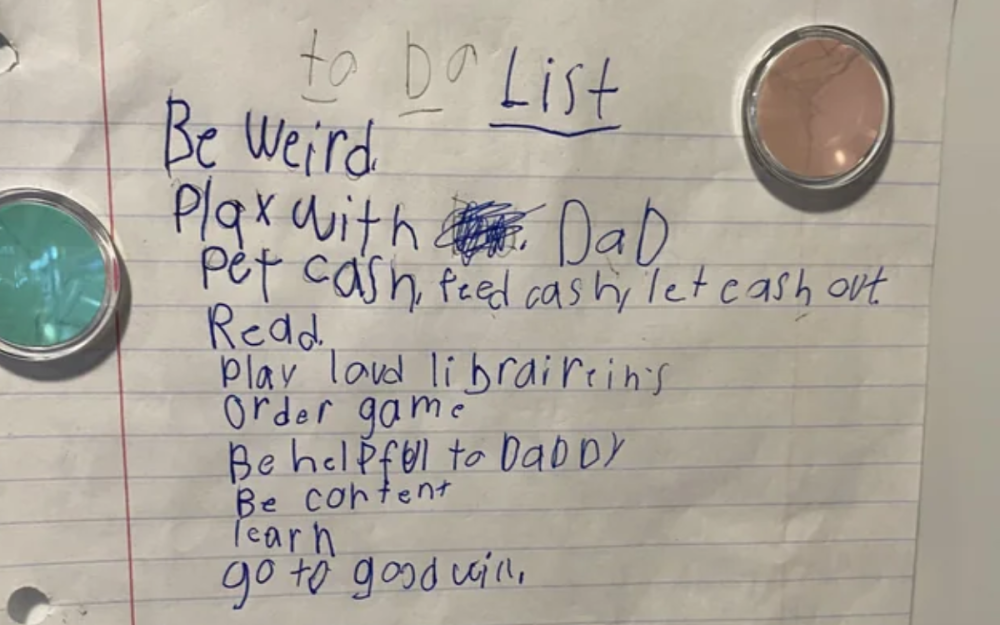 to Do List
Be Weird.
Play with DaD
Pet cash, feed cash, let cash out
Read.
Play loud librairein's
Order game
Be helpful to DaDDY
Be content
learn
go to good will.